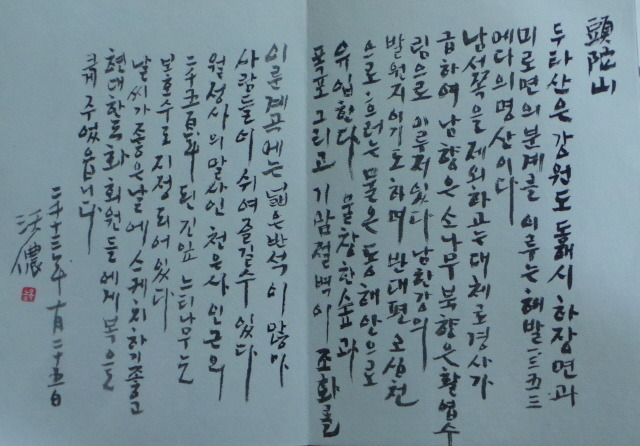 頭陀山
두타산은 강원도 동해시 하장면과
미로면의 분계를 이루는 해발 一三五三
메다의 명산이다
남서쪽을 제외하고는 대체로 경사가
급하여 남향은 소나무 북향은 활엽수
림으로 이루저있다 남한강의
발원지이기도하며 반대편 오십천
으로 흐러는 물은 동해안으로
유입한다 울창한 숲과
폭포 그리고 기암절벽이 조화를
이룬 계곡에는 넓은 반석이 많아
사람들이 쉬여 즐길수 있다
월정사의 말사인 천은사 인근의
二千五百年된 긴잎 느티나무는
보호수로 지정되어 있다
날씨가 좋은날에 스케치하기 좋고
현대한국화 회원들에게 복을
크게 주었읍니다
二千十三年 十月二十五日